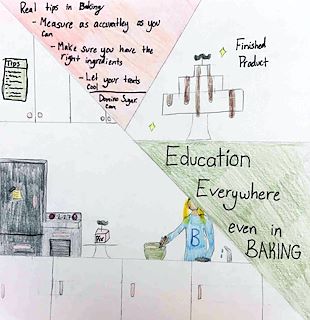 Real tips in Baking
- Measure as accuratley as you
can
- Make sure you have the
right ingredients
- Let your treats
cool
Domino Sugar.
com
TIPS
Finished
Product
Education
Everywhere
even in
BAKING
B